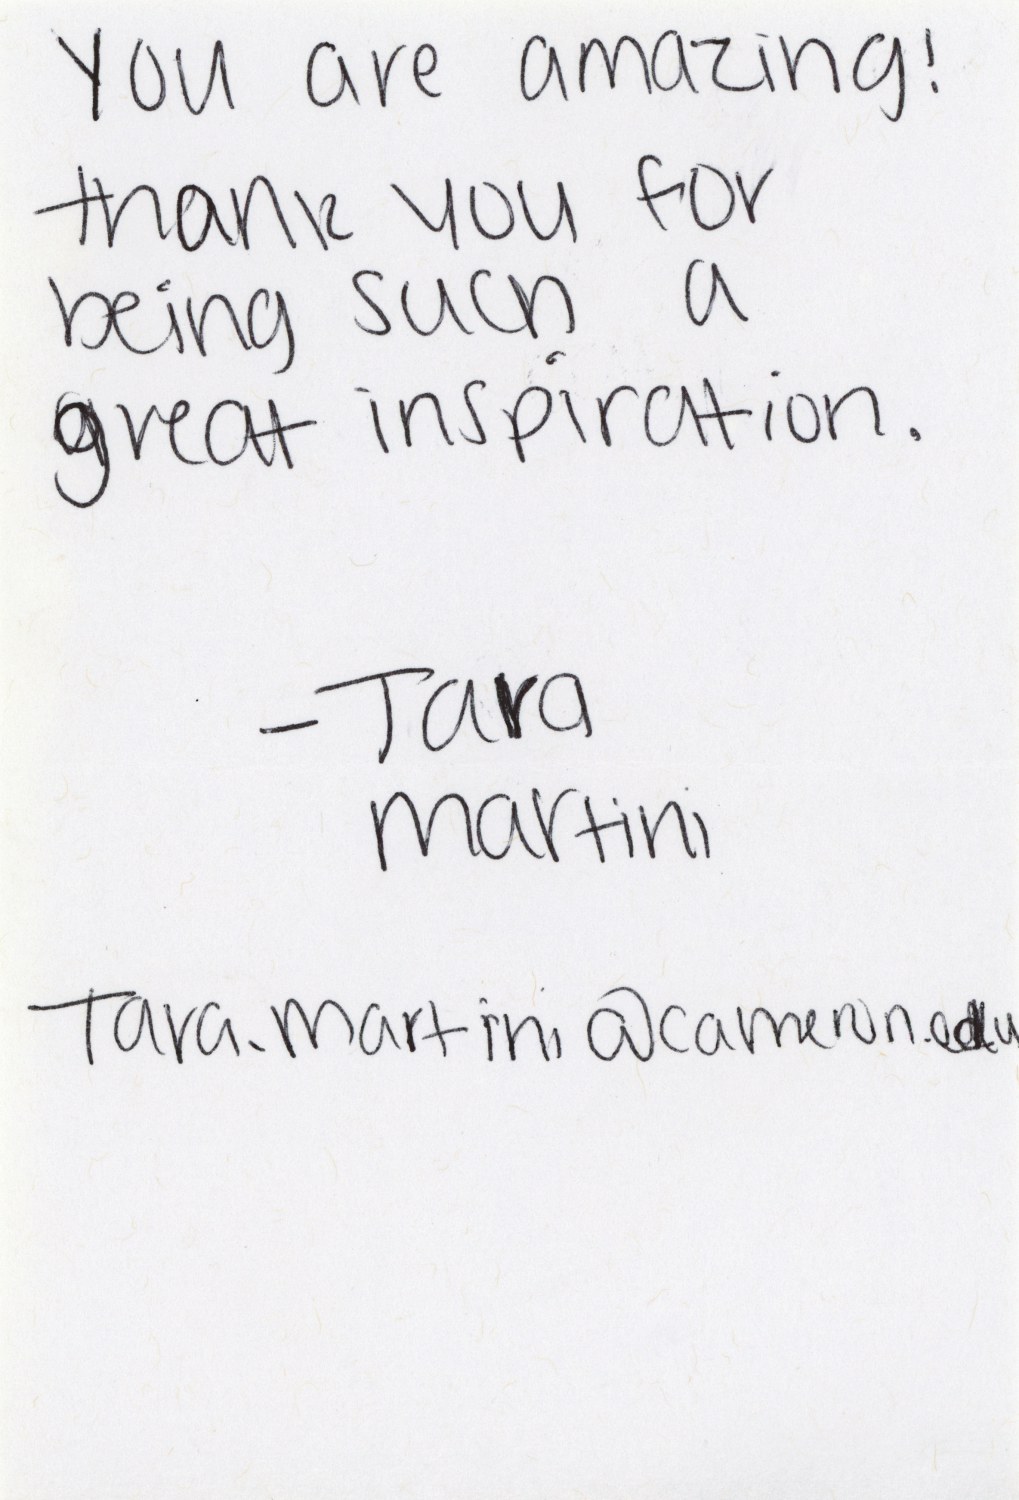 You are amazing!
thank you for
being such a
great inspiration.
- Tara
martini
Tara.martini@cameron.edu